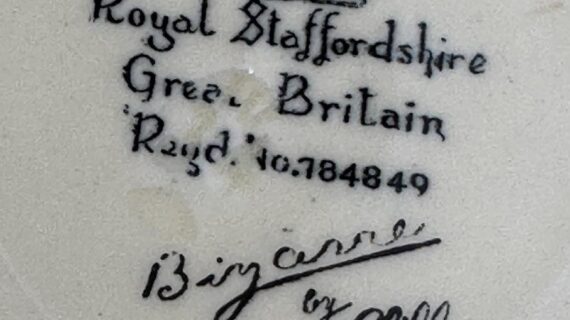 Royal Staffordshire
Great Britain
Regd. No.784849
Bizarre
by